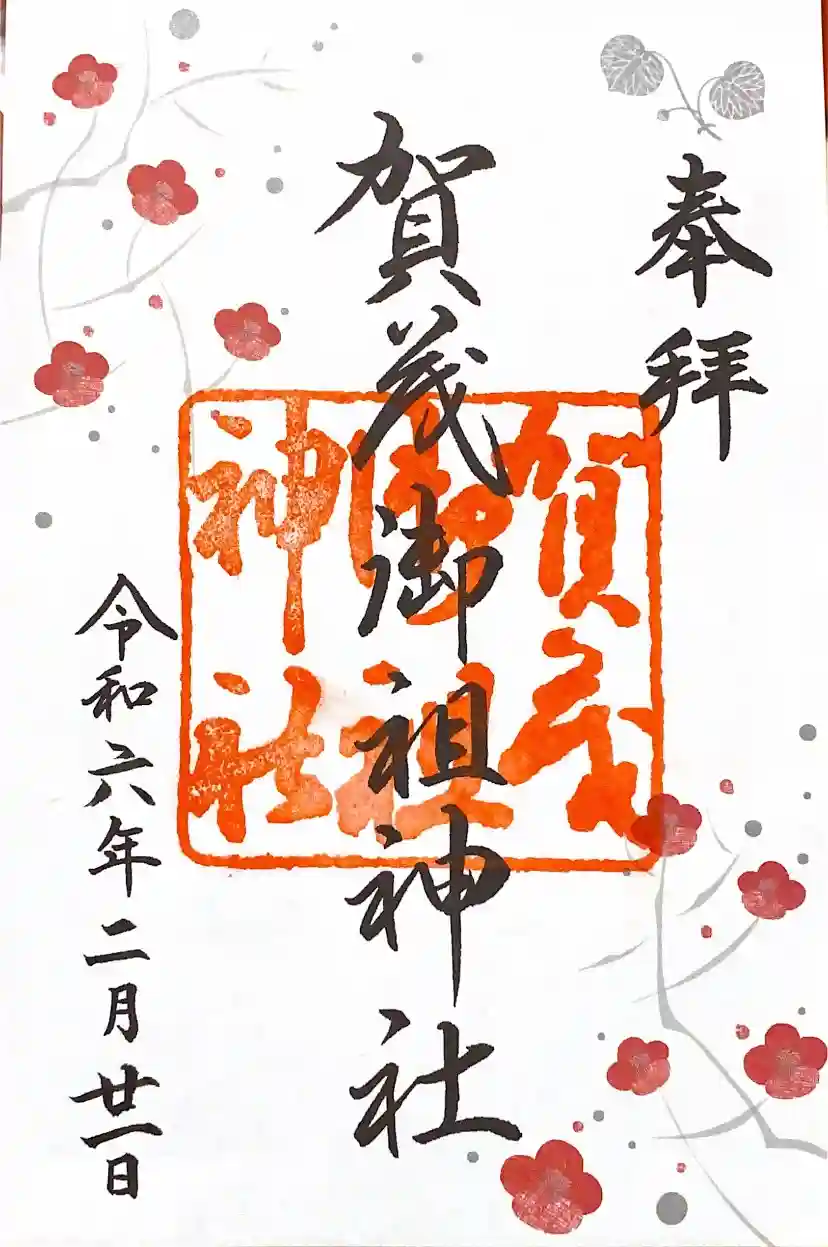 奉拝
賀茂御祖神社
賀茂
御祖
神社
令和六年二月廿一日